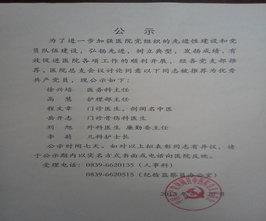 公 示
为了进一步加强医院党组织的先进性建设和党
员队伍建设，弘扬先进，树立典型，发扬成绩，有
效促进医院各项工作的顺利开展。经各党支部推
荐，医院总支会议讨论同意以下同志被推荐为优秀
共产党员，现公示如下：
医务科主任
高 慧 护理部主任
门诊妇外科医生
刘 旭 外科医生
李 莉 儿科护士长
公示时间七天。如对以上拟表彰同志有异议，请
于公示期内以签名方式书面或电话向医院反映。
受理电话：0839-6620135（人事科）
0839-6620515（纪检监察员办公室）